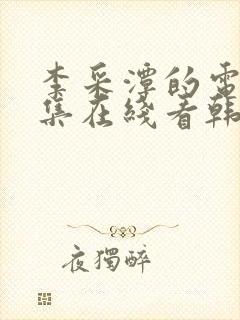 李采潭的電
集在綫看韩
夜獨醉